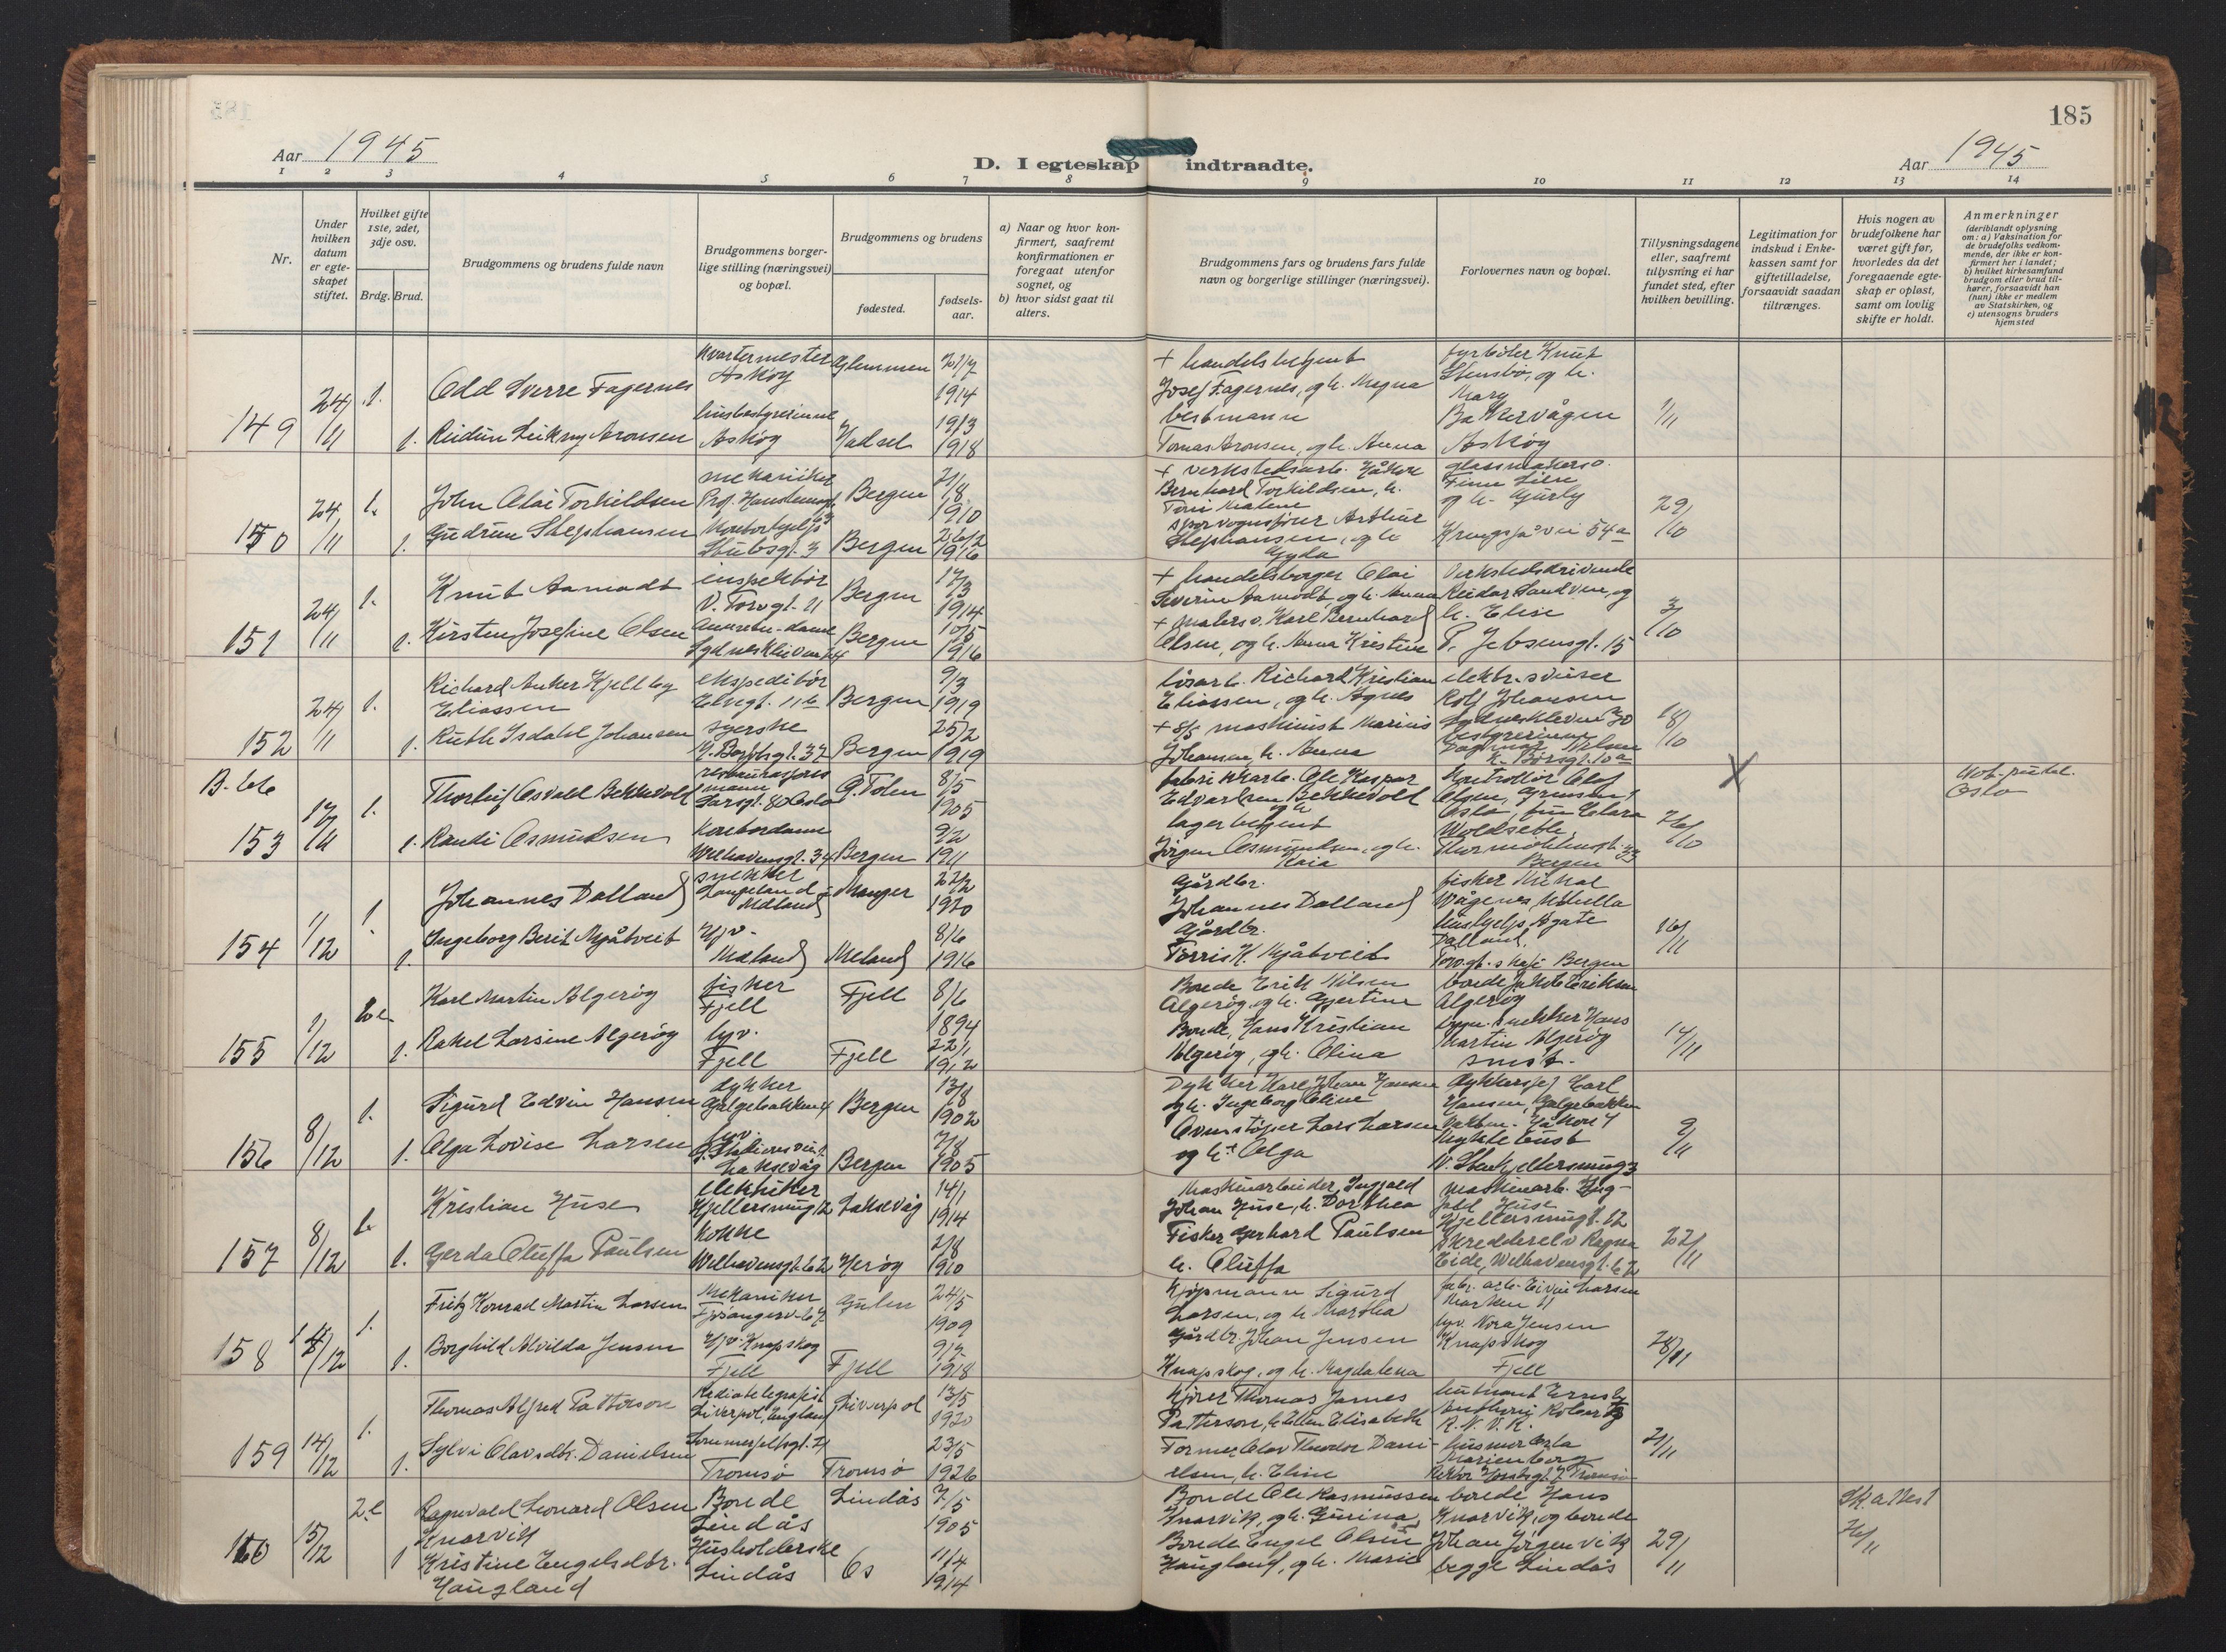 185
Aar 1945
D. I egteskap indtraadte.
Aar 1945
1 2 3 4 5 6 7 8 9 10 11 12 13 14
Nr.
Under hvilken datum er egteskapet stiftet.
Hvilket gifte 1ste, 2det, 3dje osv.
Brdg. Brud.
Brudgommens og brudens fulde navn
Brudgommens borgerlige stilling (næringsvei) og bopæl.
Brudgommens og brudens
fødested.
fødselsaar.
a) Naar og hvor konfirmert, saafremt konfirmationen er foregaat utenfor sognet, og
b) hvor sidst gaat til alters.
Brudgommens fars og brudens fars fulde navn og borgerlige stillinger (næringsvei).
Forlovernes navn og bopæl.
Tillysningsdagene eller, saafremt tillysning ei har fundet sted, efter hvilken bevilling.
Legitimation for indskud i Enkekassen samt for giftetilladelse, forsaavidt saadan tiltrænges.
Hvis nogen av brudefolkene har været gift før, hvorledes da det foregaaende egteskap er opløst, samt om lovlig skifte er holdt.
Anmerkninger
(deriblandt oplysning om: a) Vaksination for de brudefolks vedkommende, der ikke er konfirmert her i landet;
b) hvilket kirkesamfund brudgom eller brud tilhører, forsaavidt han (hun) ikke er medlem av Statskirken, og
c) utensogns bruders hjemsted
149 24/11 1. Odd Sverre Fagernes kvartermester Askøy Glemmen 21/7 1914
1. Reidun Leikny Aronsen husbestyrerinne Askøy Hadsel 1913 1918
+ handelsbetjent Josef Fagernes, og h. Magna
bestmann Tomas Aronsen, og h. Anna
fyrbøter Knut Stensbø, og h. Mary Bakkervågen Askøy
1/11
150 24/11 1. John Olai Torkildsen mekaniker Bergen 1910
1. Gudrun Stephansen Stubsgt. 3 Bergen 26/2 1916
+ verkstedsarb. Håkon Bernhard Torkildsen, h.
sporvognsfører Arthur Stephansen, og h. Gyda
glassmaker
og h. Gurly
54a
29/10
151 24/11 1. Knut Aamodt inspektør V. Torvgt. 11 Bergen 17/3 1914
1. Kirsten Josefine Olsen Sydneskleven Bergen 10/5 1916
+ handelsborger Olai Severin Aamodt, og h. Anna
+ malers. Karl Bernhard Olsen, og h. Anna Kristine
Verkstedsdrivende Reidar Sandven, og h. Elise P. Jebsensgt. 15
3/10
152 24/11 1. Richard Anker Kjellby Eliassen ekspeditør Elvegt. 11b Bergen 9/3 1919
1. Ruth Isdahl Johansen syerske Bergen 25/2 1919
løsarb. Richard Kristian Eliassen, og h. Agnes
+ s/s maskinist Marius Johansen, h. Anna
Rolf Johansen Sydneskleven 30
bestyrerinne Dagmar Nilsen
18/10
B. bb
153 17/11 1. Thorleif Osvald Bekkevold restaurasjonsmann Oslo 8/5 1905
1. Randi Osmundsen kontordame Welhavensgt. 34 Bergen 9/2 1911
fabrikkarb. Ole Kaspar Edvardsen Bekkevold og h.
lagerbetjent Jørgen Osmundsen, og h. Kaia
kontrollør Olof Olsen, Oslo, frk Clara Woldseth, Thormøhlensgt. 33 Bergen
26/10
X
Oslo
154 1/12 1. Johannes Dalland snekker Langeland i Mæland Manger 22/2 1920
1. Ingeborg Berit Mjåtveit Hjv. Mæland Meland 8/6 1916
Gårdbr. Johannes Dalland
Gårdbr. Torris K. Mjåtveit
fisker Mikal Vågenes,
Hushjelp Agate Dalland, Bergen
16/11
155 1/12 2. Karl Martin Algerøy fisker Fjell Fjell 8/6 1894
1. Rakel Larsine Algerøy hjv. Fjell Fjell 22/1 1912
Bonde Erik Nilsen Algerøy, og h. Gjertine
Bonde, Hans Kristian Algerøy, og h. Olina
bonde Jakob Eriksen Algerøy
snekker Hans Martin Algerøy smst.
14/11
156 8/12 1. Sigurd Edvin Hansen dykker Galgebakken 4 Bergen 13/8 1902
1. Olga Lovise Larsen hjv. Laksevåg Bergen 7/8 1905
Dykker Karl Johan Hansen og h. Ingeborg Oline
Ovnstøper Lars Larsen og h. + Olga
Dykkersjef Karl Hansen, Galgebakken
Håkon Myklebust
9/11
157 8/12 1. Kristian Huse elektriker Kjellersmug 12 Laksevåg 14/1 1914
1. Gerda Oluffa Paulsen kokke Welhavensgt. 62 Herøy 2/8 1910
Maskinarbeider, Ingvald Johan Huse, h. Dorthea
Fisker Gerhard Paulsen h. Oluffa
maskinarb. Ingvald Huse Kjellersmugt. 12
Ragna Eide, Welhavensgt. 62
22/11
158 8/12 1. Fritz Konrad Martin Larsen mekaniker Fjøsangerv. 67 Gulen 24/5 1909
1. Borghild Alvilda Jensen Hjv. Knapskog Fjell Fjell 9/7 1918
Kjøpmann Sigurd Larsen, og h. Martha
Gårdbr. Johan Jensen Knapskog, og h. Magdalena
fabr. arb. Eivin Larsen Marken 11
hjv. Nora Jensen Knapskog Fjell
28/11
159 14/12 1. Thomas Alfred Patterson Radiotelegrafist Liverpol, England Liverpol 13/5 1920
1. Sylvi Olavsdtr. Danielsen Tromsø Tromsø 23/5 1926
Kjører Thomas James Patterson, h. Ellen Elisabeth
Former Olav Theodor Danielsen, h. Eline
løitnant R. N. V. R.
husmor Marienborg Tromsø
21/11
160 15/12 2. Ragnvald Leonard Olsen Knarvik Bonde Lindås Lindås 7/5 1905
1 Kristine Engelsdtr. Haugland Husholderske Lindås Os 11/4 1914
Bonde Ole Rasmussen Knarvik, og h. Gurina
Bonde Engel Olsen Haugland, og h. Marie
bonde Hans Knarvik, og bonde Johan Jörgenvik begge Lindås
29/11
Sk.attest 26/11